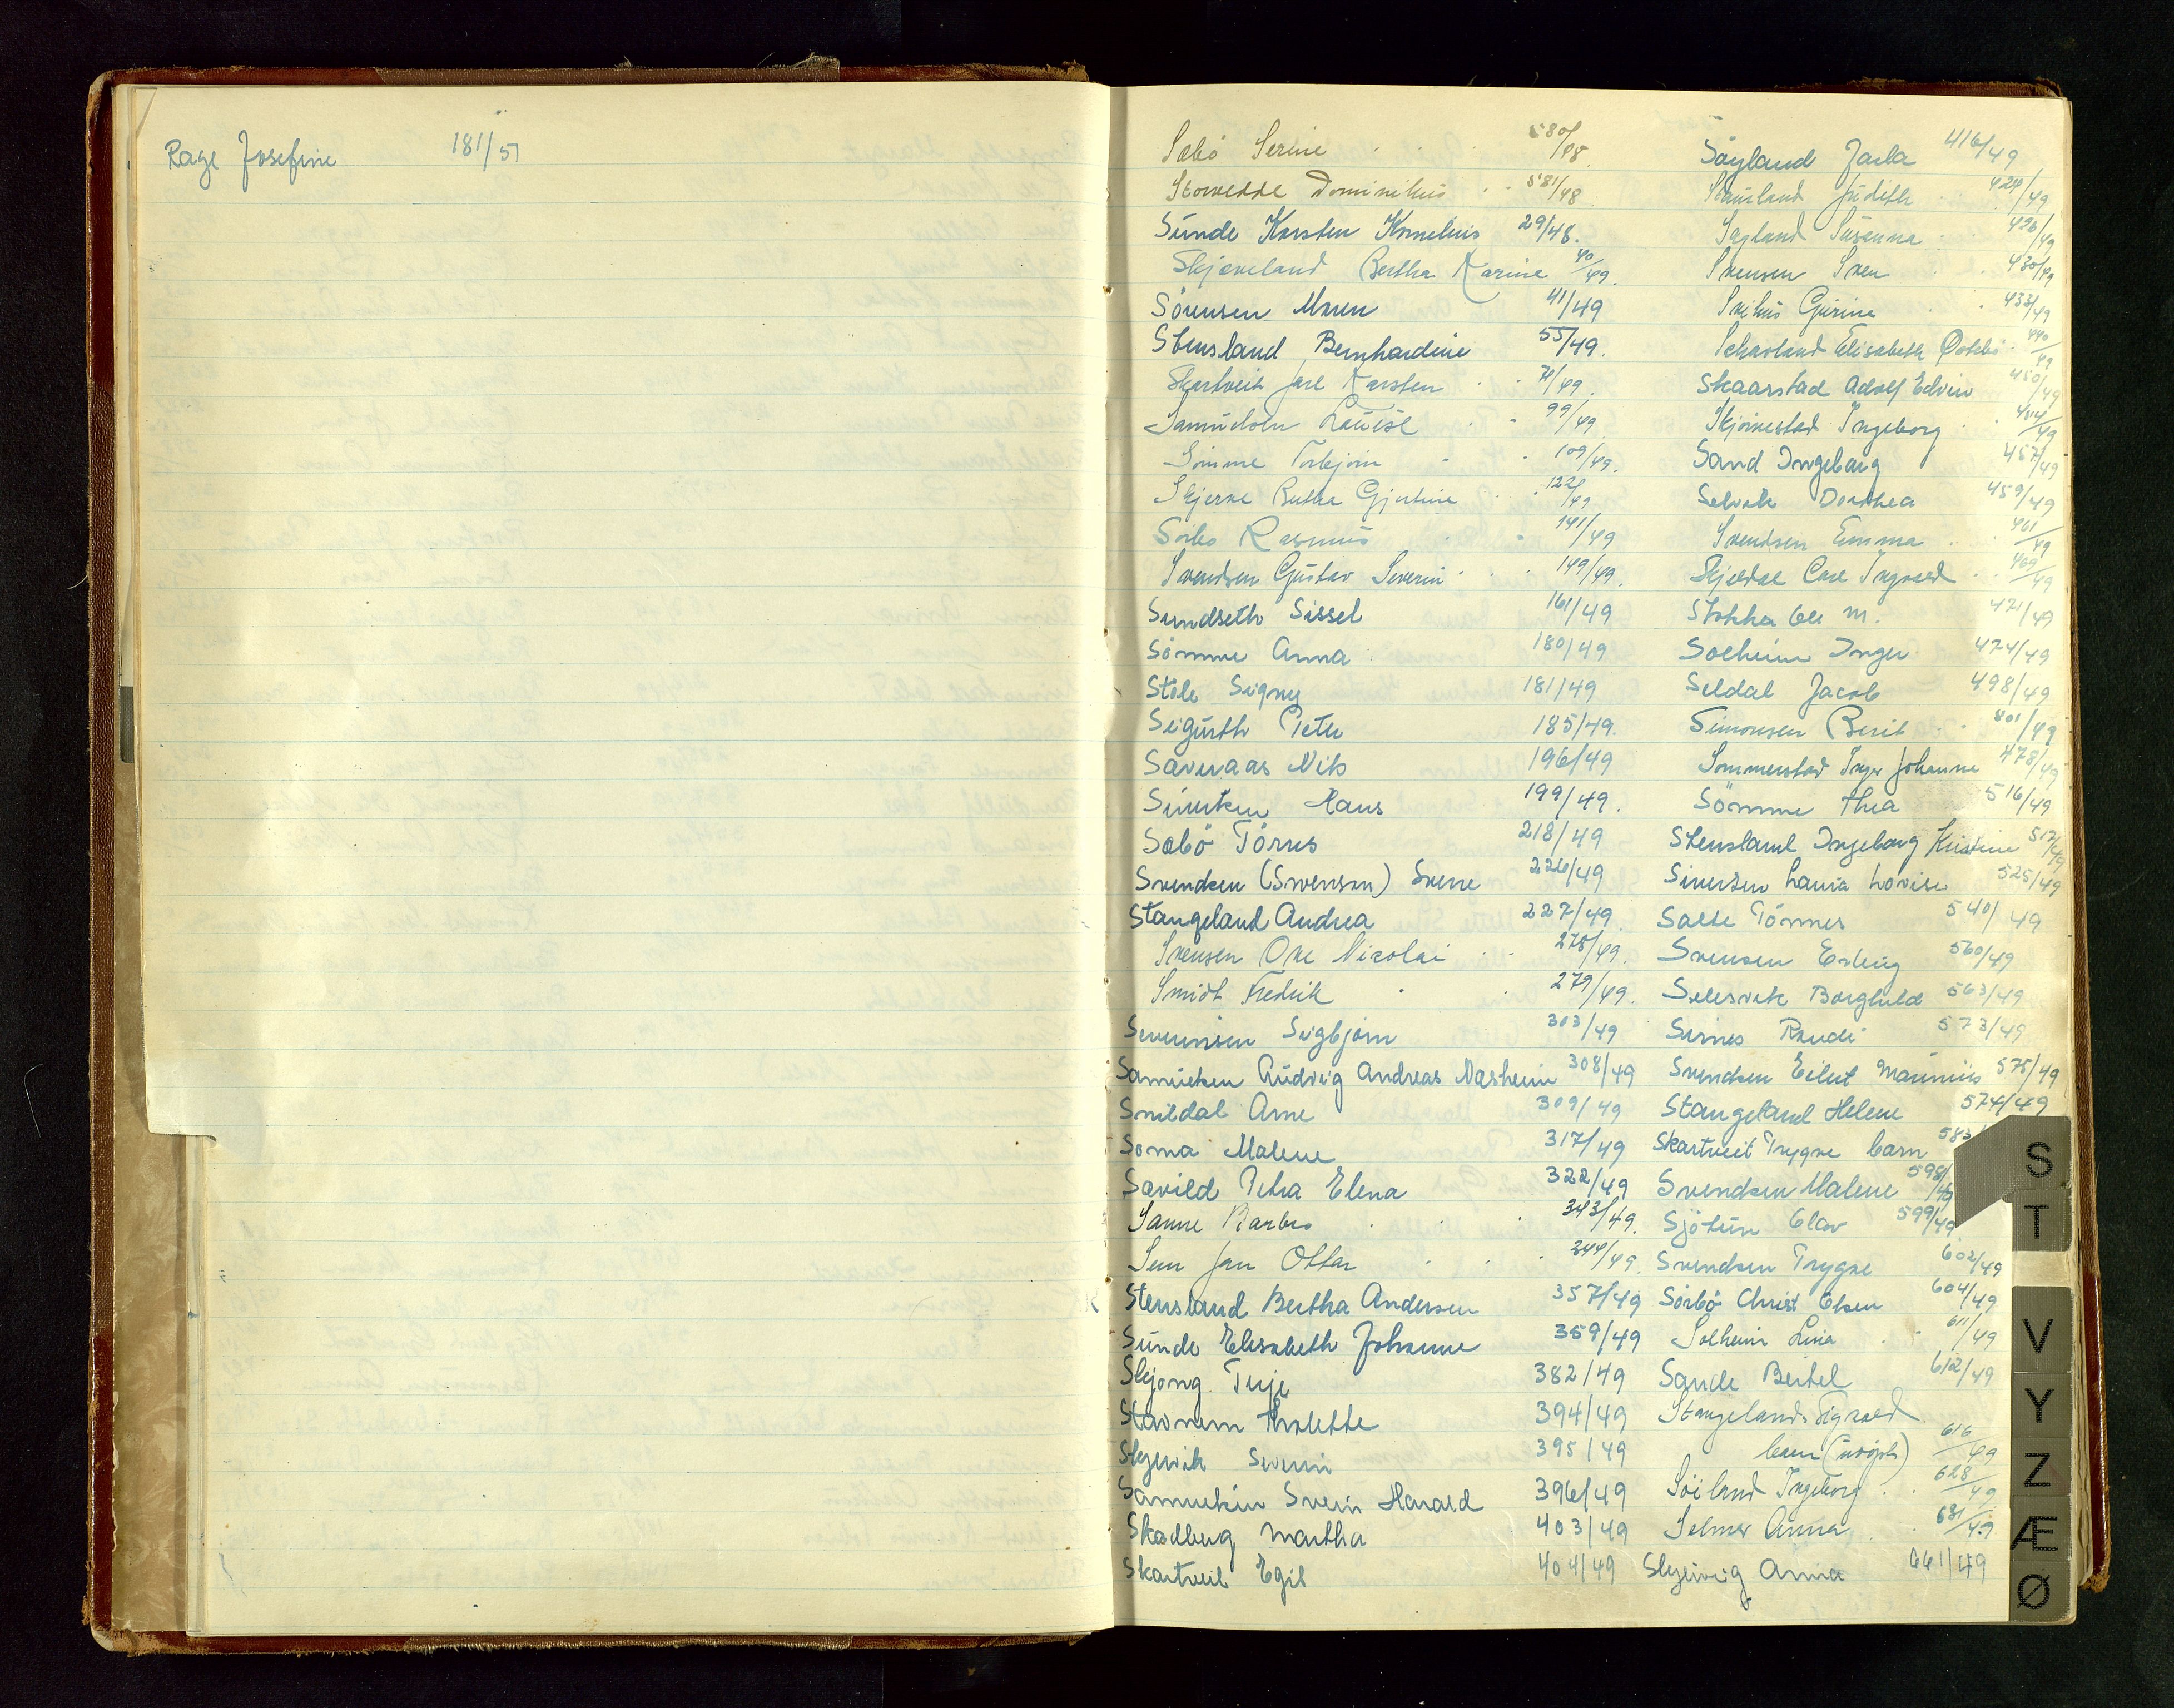 Rage Josefine 181/51
Sæbö Serine 580/48.
Storvedde Dominikus 581/48
Sunde Karsten Kornelius 29/48.
Skjæveland Bertha Karine 40/49.
Sörensen Maren 41/49
Stensland Bernhardine 55/49.
Skartveit Jarl Karsten 71/49.
Samuelsen Louise 99/49
Sömme Torbjörn 109/49.
Skjerve Bertha Gjertine 122/49
Sörbö Rasmus 141/49
Svendsen Gustav Severin 149/49.
Sundseth Sissel 161/49
Sömme Anna 180/49
Stöle Signy 181/49
Sigurth Peter 185/49.
Saveraas Nils 196/49
Sivertsen Hans 199/49.
Sæbö Törres 218/49
Svendsen (Swenson) Sverre 226/49
Stangeland Andrea 227/49
Svensen Ove Nicolai 278/49.
Smidt Fredrik 279/49.
Severinsen Sigbjörn 303/49
Samuelsen Ludvig Andreas Nasheim 308/49
Snildal Arne 309/49
Soma Malene 317/49
Savild Petra Elena 322/49
Sanne Barbro 343/49.
Sem Jan Ottar 344/49.
Stensland Bertha Andersen 357/49
Sunde Elisabeth Johanne 359/49
Skjong Terje 382/49
Stavnem Tholette 394/49
Skjevik Severin 395/49
Samuelsen Svein Harald 396/49
Skadberg Martha 403/49
Skartveit Egil 404/49
Söyland Jarla 416/49
Stauland Judith 424/49
Sagland Susanna 426/49
Svensen Sven 430/49
Svihus Gurine 433/49
Schavland Elisabeth 440/49
Skaarstad Adolf Edvin 450/49
Skjörestad Ingeborg 454/49
Sand Ingeborg 457/49
Selvik Dorthea 459/49
Svendsen Emma 461/49
Skjeldal Carl Ingvald 469/49
Stokka Ole M. 471/49
Solheim Inger 474/49
Seldal Jacob 498/49
Simonsen Berit 501/49
Sommerstad Inger Johanne 478/49
Sömme Thea 516/49
Stensland Ingeborg Kristine 517/49
Sivertsen Laura Lovise 525/49
Salte Tönnes 540/49
Svensen Erling 560/49
Selesvik Borghild 563/49
Sirnes Randi 573/49
Svendsen Eilert Maurinius 575/49
Stangeland Helene 574/49
Skartveit Trygve barn 583/
Svendsen Malene 598/49
Sjötun Olav 599/49
Svendsen Trygve 602/49
Sörbö Christ Olsen 604/49
Solheim Lina 611/49
Sande Bertel 612/49
Stangeland Sigvald
barn (udöpt) 616/49
Söiland Ingeborg 628/49
Selmer Anna 631/49
Skjeivig Anna 661/49
S
T
V
Y
Z
Æ
Ø